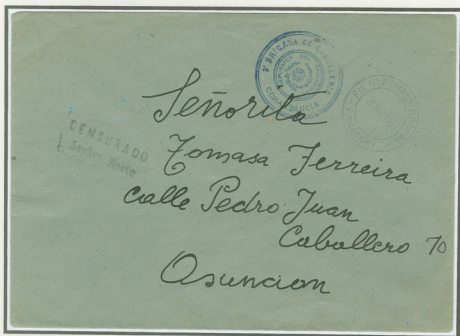 3ª BRIGADA DE CABALLERIA
COMANDANCIA
Señorita
CENSURADO
Sector Norte
Tomasa Ferreira
calle Pedro Juan
Caballero 70
Asuncion